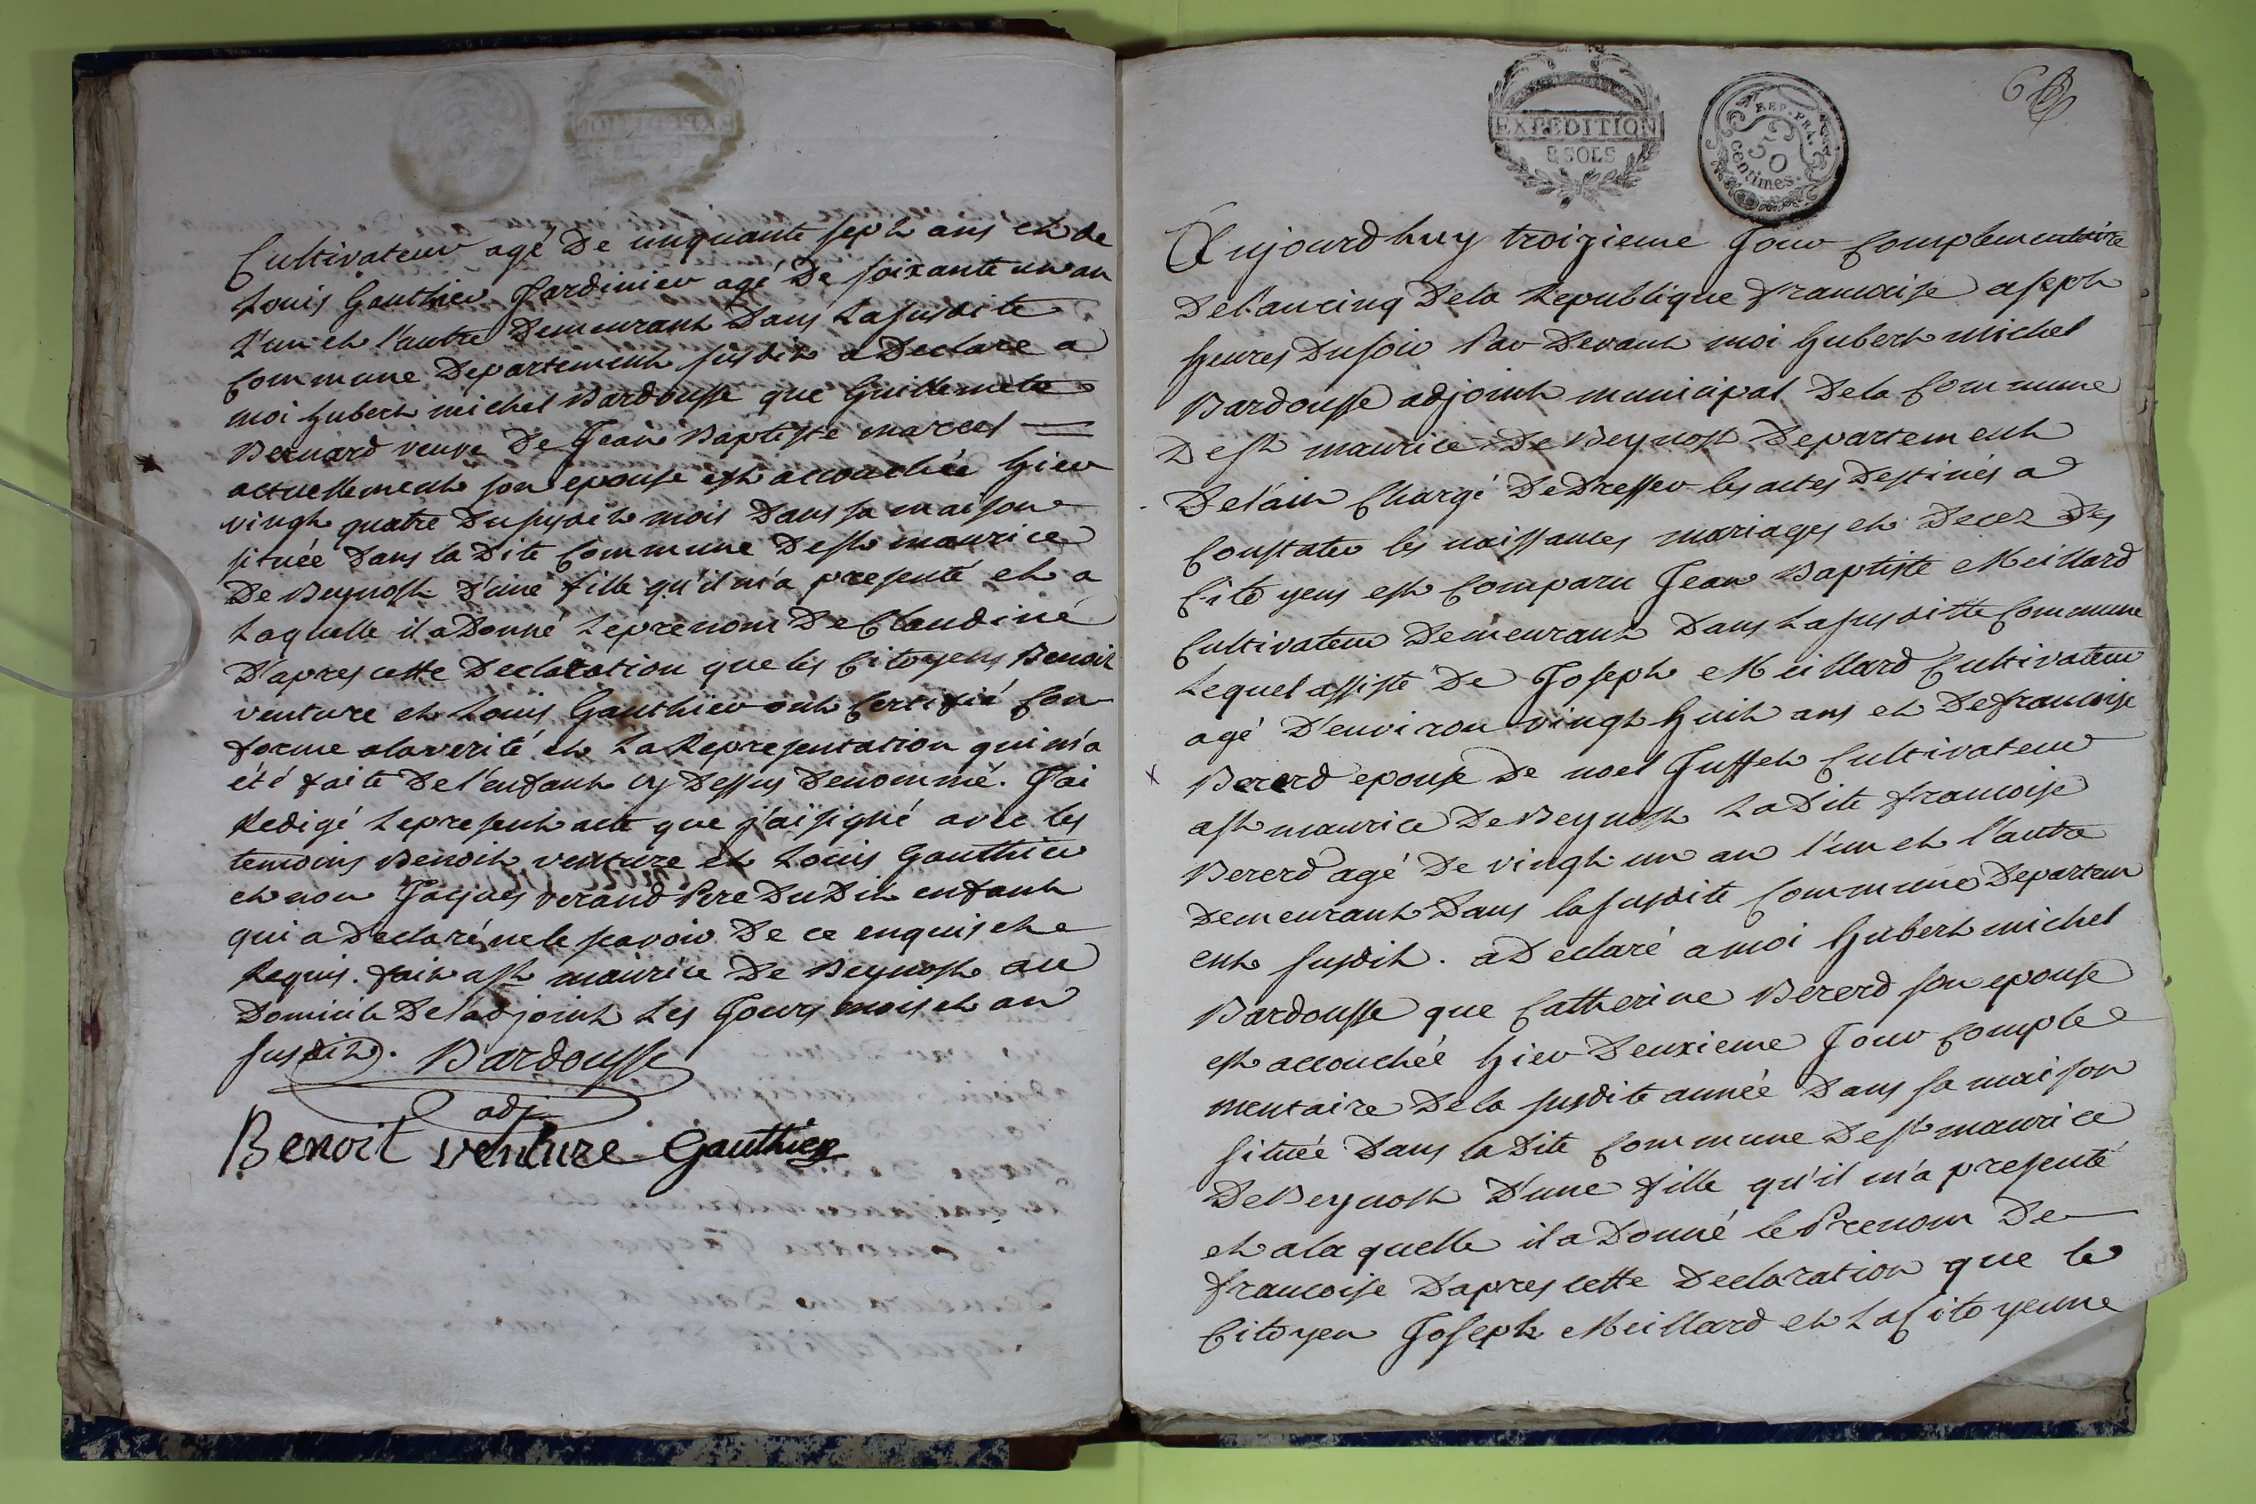 Cultivateur agé De cinquante sept ans et de
Louis Gauthier Jardinier agé De soixante un an
L'un et l'autre Demeurant Dans La susdite
Commune Departement susdit a Declaré a
moi hubert michel Bardousse que Guillemette
Bernard veuve De Jean Baptiste marcel
actuellement son epouse est accouchée hier
vingt quatre Du susdit mois Dans sa maison
située Dans la Dite Commune De st maurice
De Beynost D'une fille qu'il m'a presenté et a
Laquelle il a Donné Le prenom De Claudine
D'apres cette Declaration que les Citoyens Benoit
venture et Louis Gauthier ont Certifié Con
forme a la verité et La Representation qui m'a
été faite De l'enfant cy Dessus Denommé. J'ai
Redigé Le present acte que j'ai signé avec les
temoins Benoit venture et Louis Gauthier
et non Jaques verand Pere Du Dit enfant
qui a Declaré ne le scavoir De ce enquis et
Requis. fait a st maurice De Beynost au
Domicile De l'adjoint Les Jours mois et an
susdit. Bardousse
adj
Benoit venture Gauthier
EXPEDITION
8 SOLS
REP. FRA.
50
centimes.
6
Aujourd huy troizieme Jour Complementaire
De l'an cinq De la Republique francoise a sept
heures Du soir Par Devant moi hubert michel
Bardousse adjoint municipal De la Commune
De st maurice De Beynost Departement
De l'ain Chargé De Dresser les actes Destinés a
Constater les naissances mariages et Decez Des
Citoyens est Comparu Jean Baptiste Meillard
Cultivateur Demeurant Dans La susditte Commune
Lequel assisté De Joseph Meillard Cultivateur
agé D'environ vingt huit ans et De francoise
x Bererd epouse De noel Juffet Cultivateur
a st maurice De Beynost La Dite francoise
Bererd agé De vingt un an l'un et l'autre
Demeurant Dans la susdite Commune Departem
ent susdit. a Declaré a moi hubert michel
Bardousse que Catherine Bererd son epouse
est accouchée hier Deuxieme Jour Comple
mentaire De la susdite année Dans sa maison
située Dans la Dite Commune De st maurice
De Beynost D'une fille qu'il m'a presenté
et a la quelle il a Donné le Prenom De
francoise D'apres cette Declaration que le
Citoyen Joseph Meillard et La Citoyenne